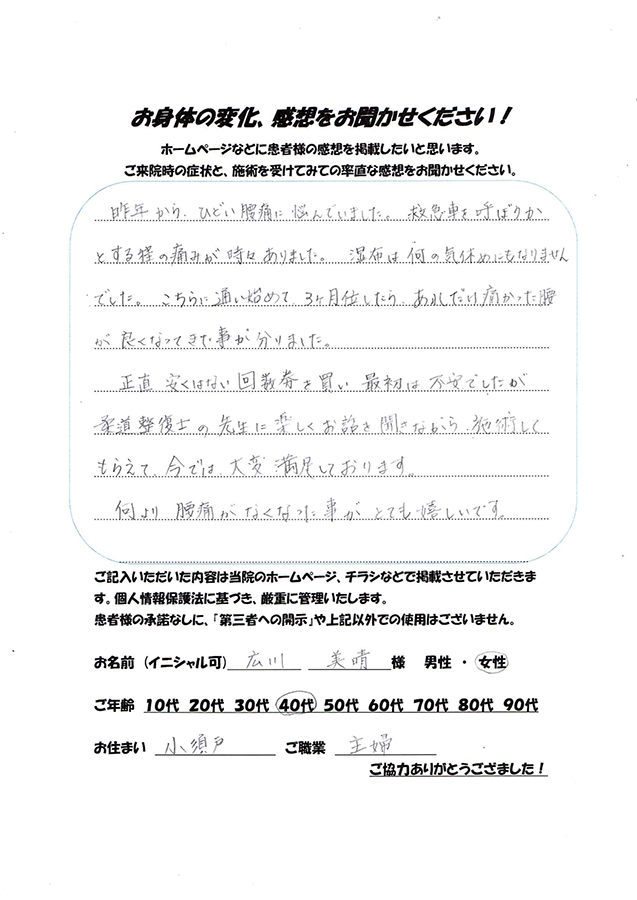 お身体の変化、感想をお聞かせください！
ホームページなどに患者様の感想を掲載したいと思います。
ご来院時の症状と、施術を受けてみての率直な感想をお聞かせください。
昨年から、ひどい腰痛に悩んでいました。 救急車を呼ばりか
とする程の痛みが時々ありました。 湿布は何の気休めにもなりません
でした。 こちらに通い始めて 3ヶ月位したら、あれだけ痛かった腰
が良くなってきた事が分りました。
正直 安くはない回数券を買い 最初は 不安でしたが
柔道整復士の先生に楽しくお話を聞きながら、施術して
もらえて、今では、大変満足しております。
何より 腰痛がなくなった事が とても嬉しいです。
ご記入いただいた内容は当院のホームページ、チラシなどで掲載させていただきま
す。個人情報保護法に基づき、厳重に管理いたします。
患者様の承諾なしに、「第三者への開示」や上記以外での使用はございません。
お名前（イニシャル可） 広川 美晴 様 男性 ・ 女性
ご年齢 10代 20代 30代 40代 50代 60代 70代 80代 90代
お住まい 小須戸 ご職業 主婦
ご協力ありがとうござました！